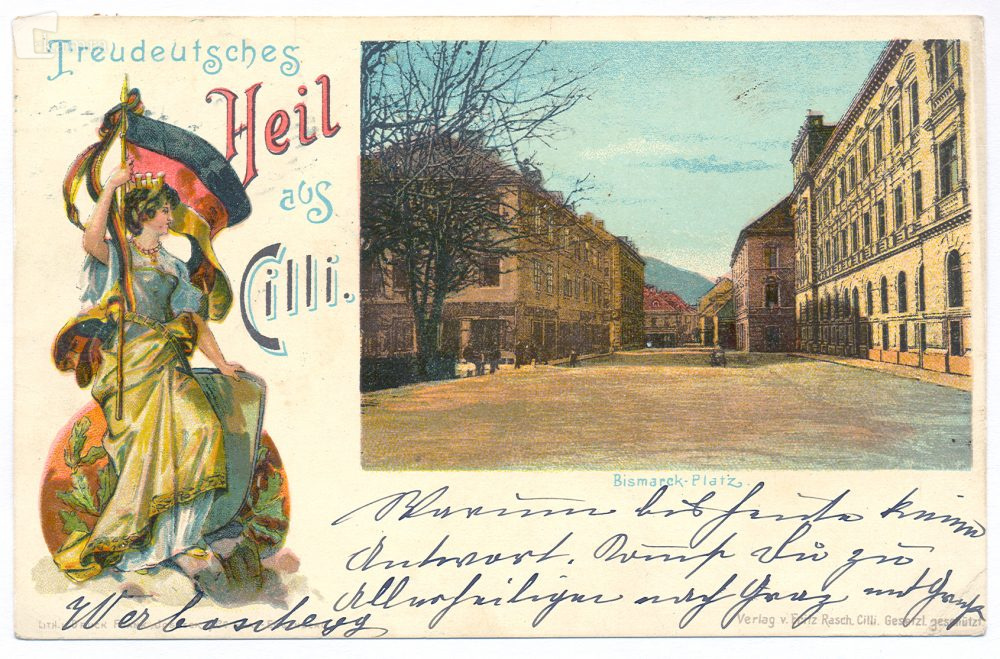 Treudeutsches
Heil
aus
Cilli.
Bismarck-Platz.
Warum bis heute keine
Antwort. Kommst Du zu
Allerheiligen nach Graz mit
Verlag v. Fritz Rasch, Cilli. Gesetzl. geschützt.